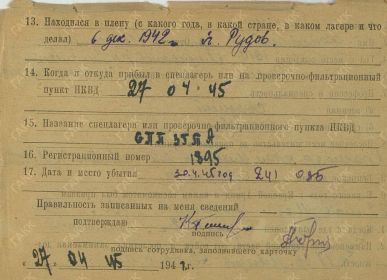 13. Находился в плену (с какого года, в какой стране, в каком лагере и что
делал) 6 дек. 1942г. Рудов.
14. Когда и откуда прибыл в спецлагерь или на проверочно-фильтрационный
пункт НКВД 27 04 45
15. Название спецлагеря или проверочно-фильтрационного пункта НКВД
СПП
16. Регистрационный номер 1395
17. Дата и место убытия 30.4.45 год 241
Правильность записанных на меня сведений
подтверждаю
подпись
подпись сотрудника, заполнявшего карточку
„ 27 04 45 194 г.